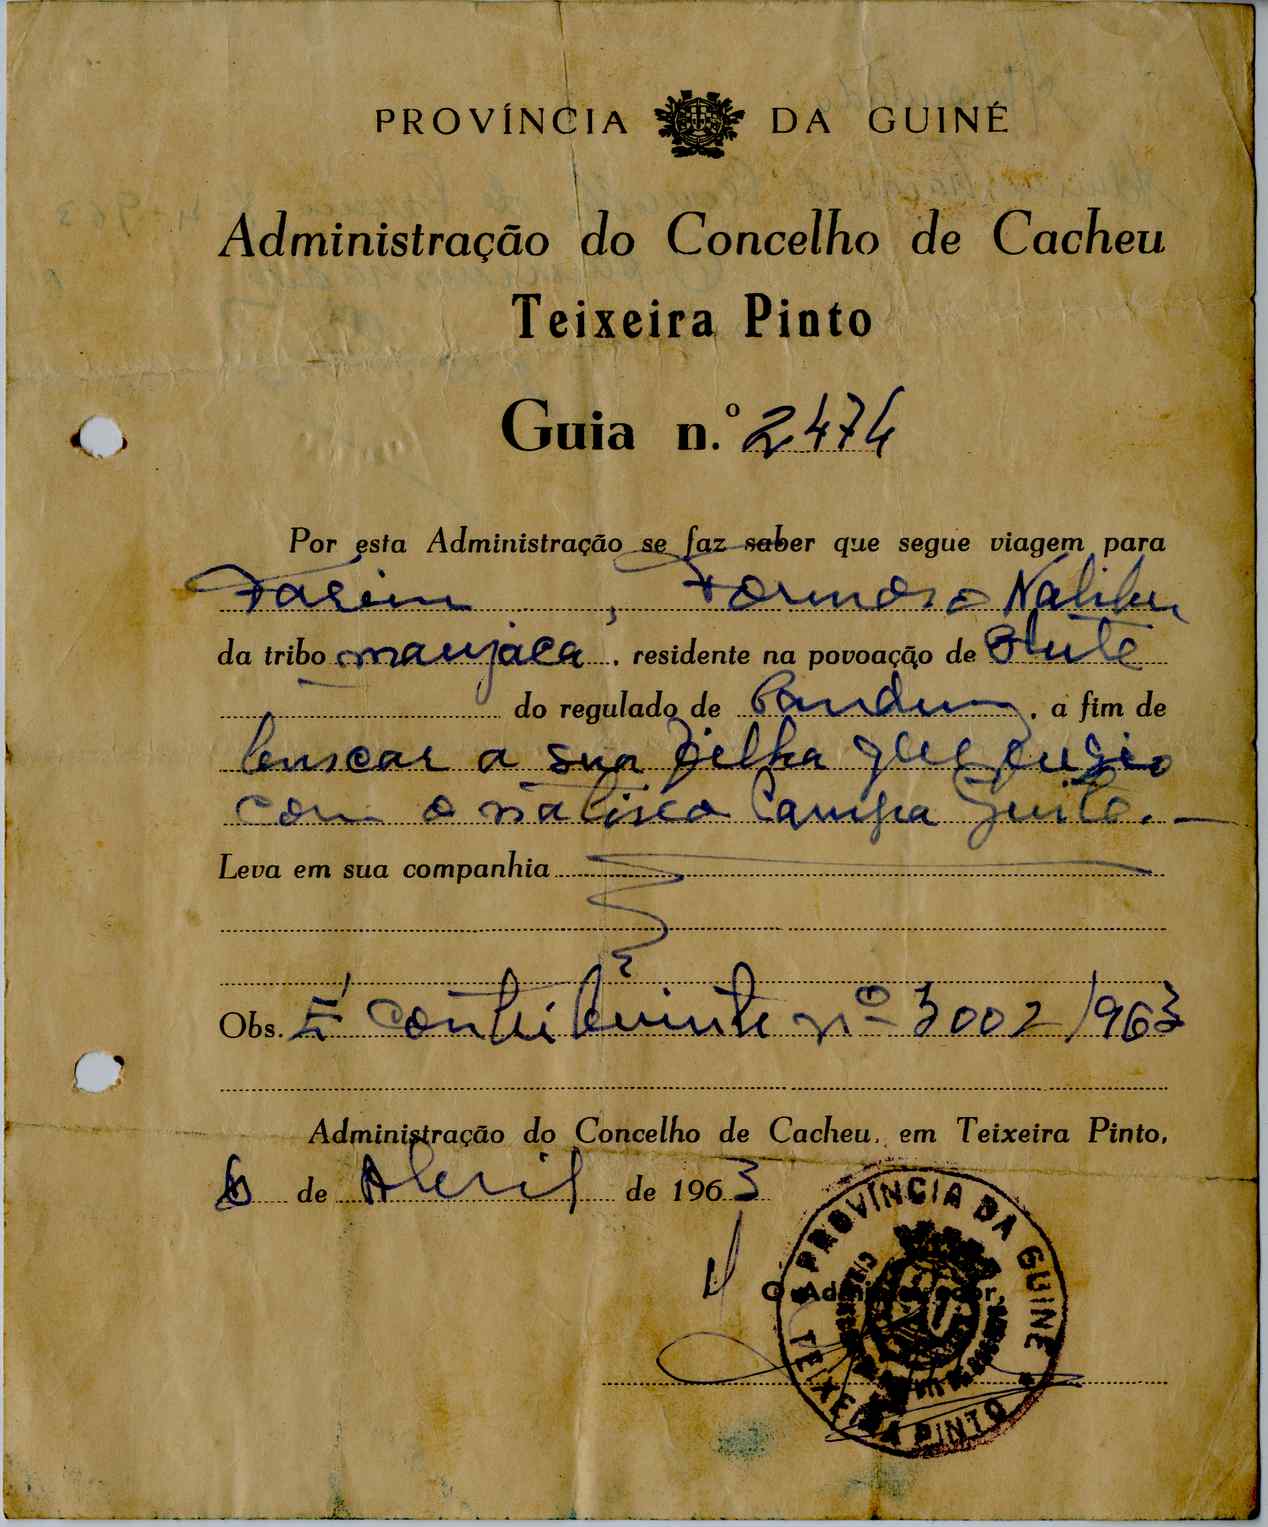 PROVÍNCIA DA GUINÉ
Administração do Concelho de Cacheu
Teixeira Pinto
Guia n.º 2474
Por esta Administração se faz saber que segue viagem para
Farim, Formoso
da tribo manjaca, residente na povoação de
do regulado de a fim de
buscar a sua filha que fugio
com o
Leva em sua companhia
Obs. É contribuinte nº 3002/963
Administração do Concelho de Cacheu, em Teixeira Pinto,
6 de Abril de 1963
O Administrador,
PROVÍNCIA DA GUINÉ
TEIXEIRA PINTO